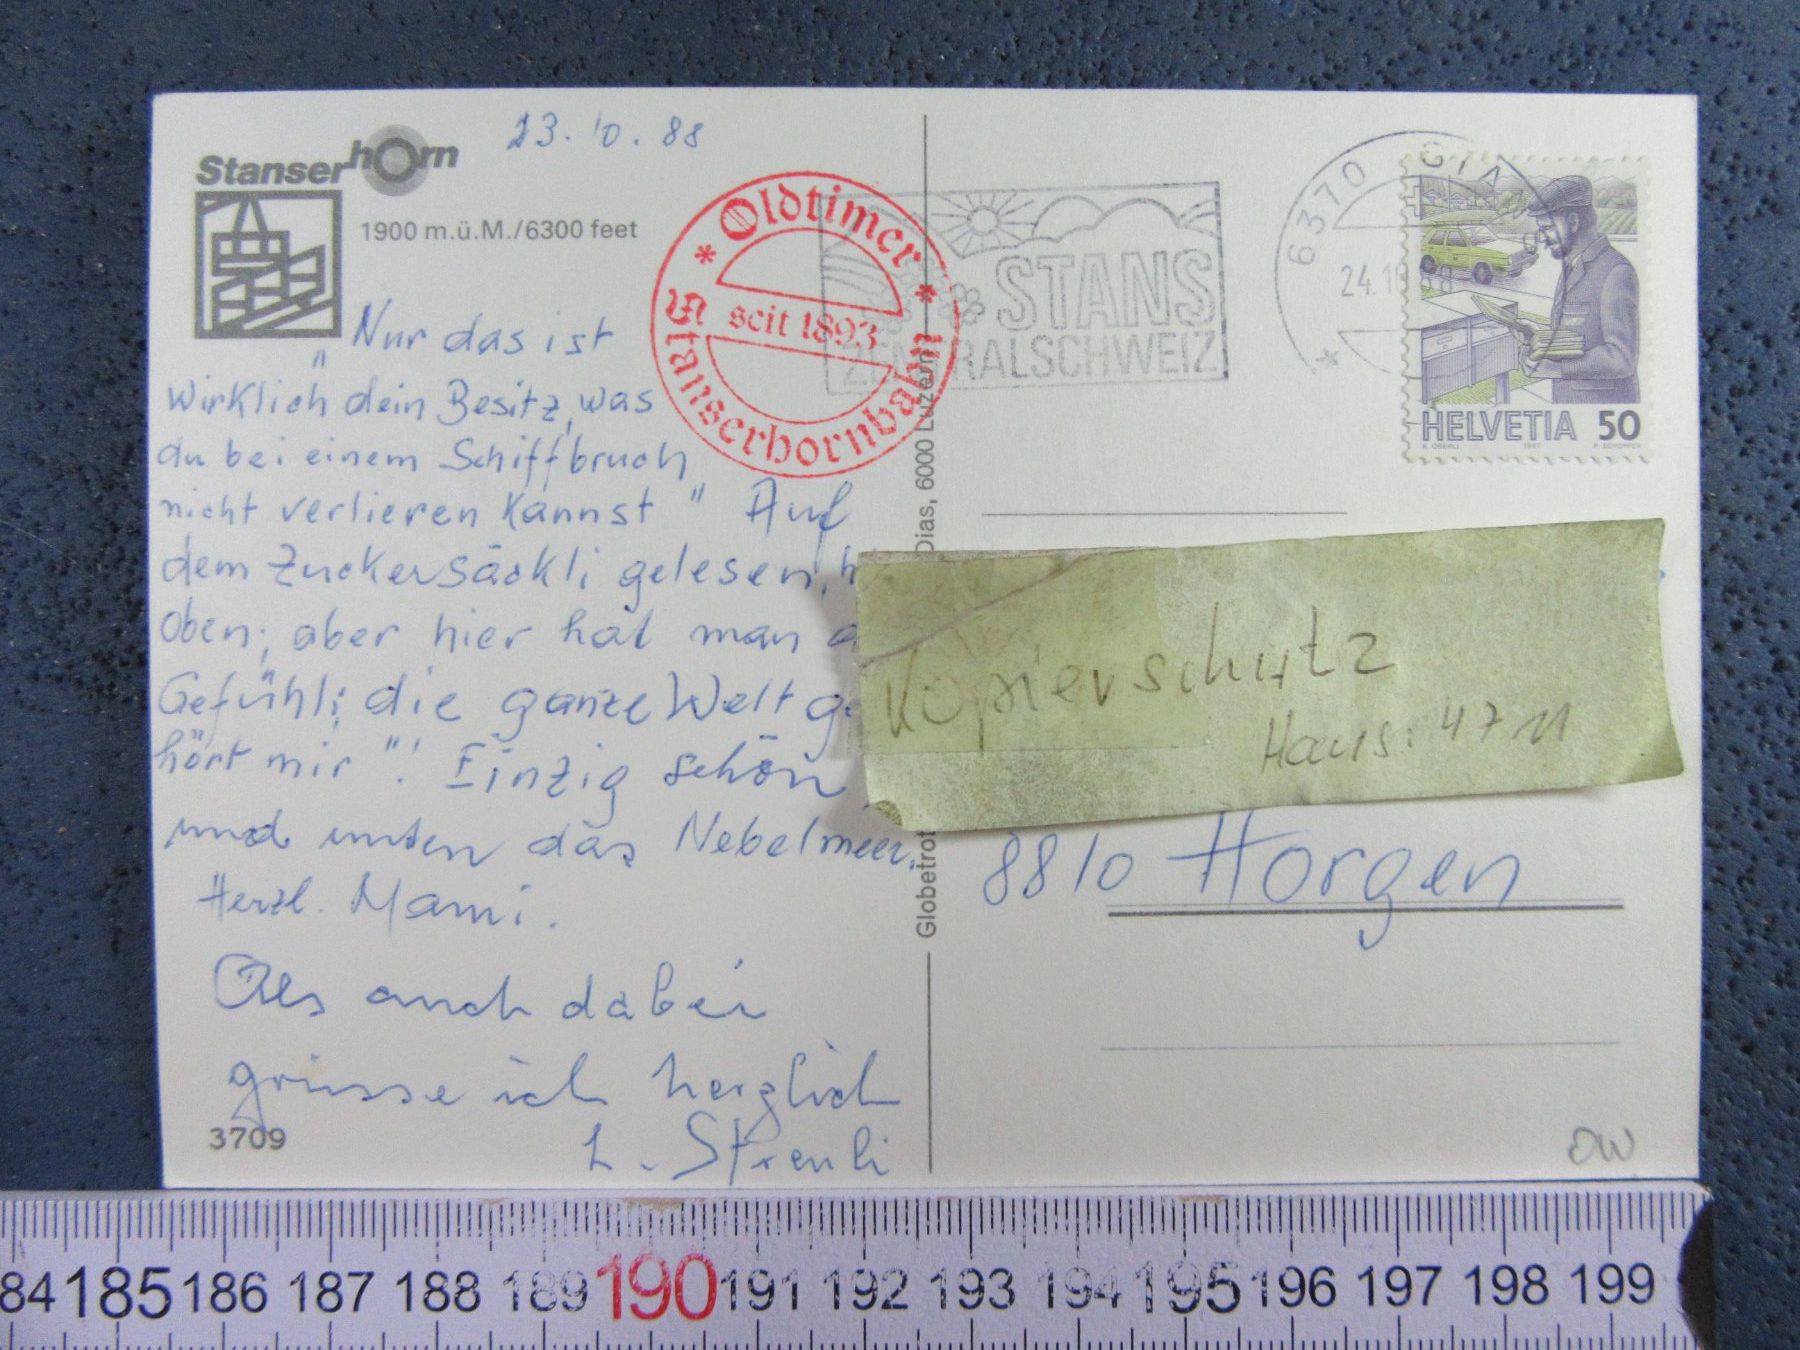 Stanserhorn
1900 m.ü.M./6300 feet
23.10.88
* Oldtimer *
seit 1893
Stanserhornbahn
STANS
ZENTRALSCHWEIZ
6370
24.10
HELVETIA 50
"Nur das ist
wirklich dein Besitz, was
du bei einem Schiffbruch
nicht verlieren kannst" Auf
dem Zuckersäckli gelesen, h
oben; aber hier hat man d
Gefühl; die ganze Welt ge
hört mir"! Einzig schön,
und unten das Nebelmeer.
Herzl. Mami.
Als auch dabei
grüsse ich herzlich
L. Streuli
3709
Globetrot
Dias, 6000 Luzern
Kopierschutz
Haus: 4711
8810 Horgen
OW
84 185 186 187 188 189 190 191 192 193 194 195 196 197 198 199